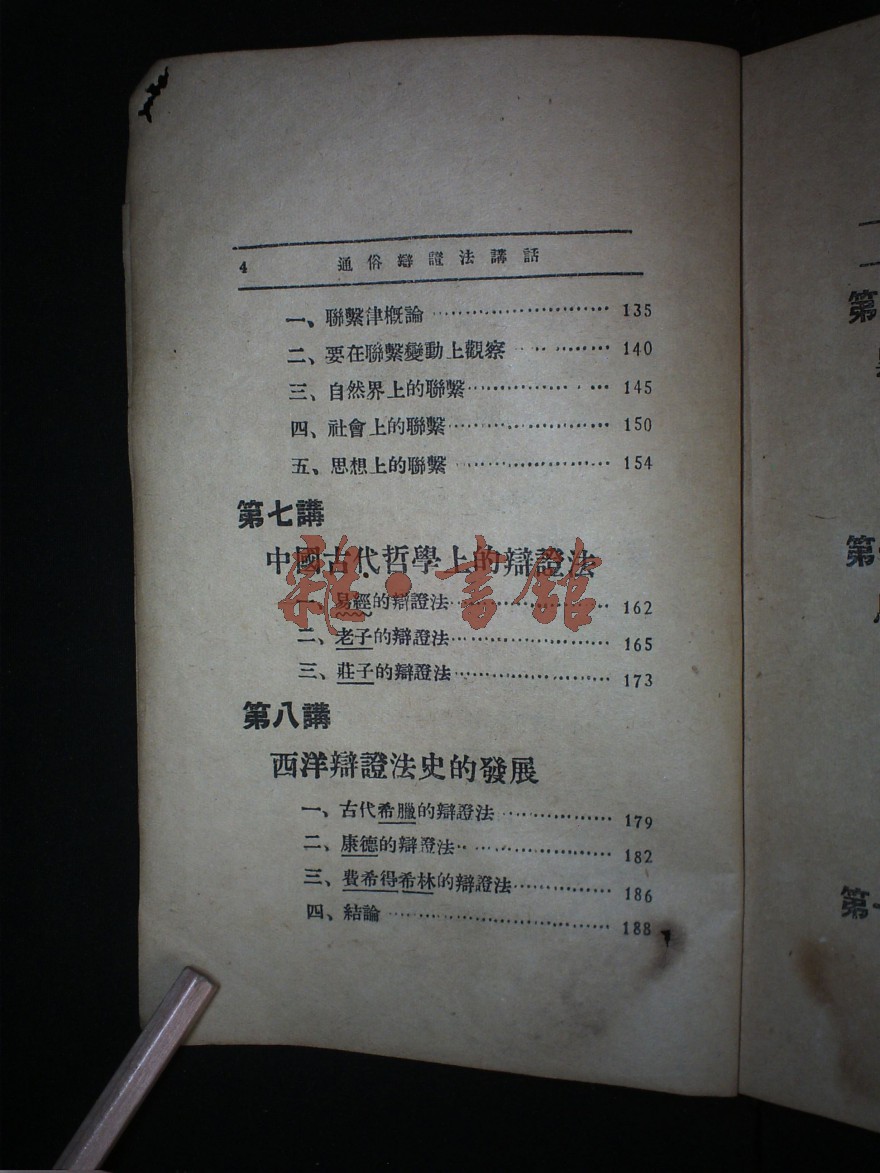 4 通俗辯證法講話
一、聯繫津概論 135
二、要在聯繫變動上觀察 140
三、自然界上的聯繫 145
四、社會上的聯繫 150
五、思想上的聯繫 154
第七講
中國古代哲學上的辯證法
一、易經的辯證法 162
二、老子的辯證法 165
三、莊子的辯證法 173
第八講
西洋辯證法史的發展
一、古代希臘的辯證法 179
二、康德的辯證法 182
三、費希得希林的辯證法 186
四、結論 188
雜·書館
第
第
第